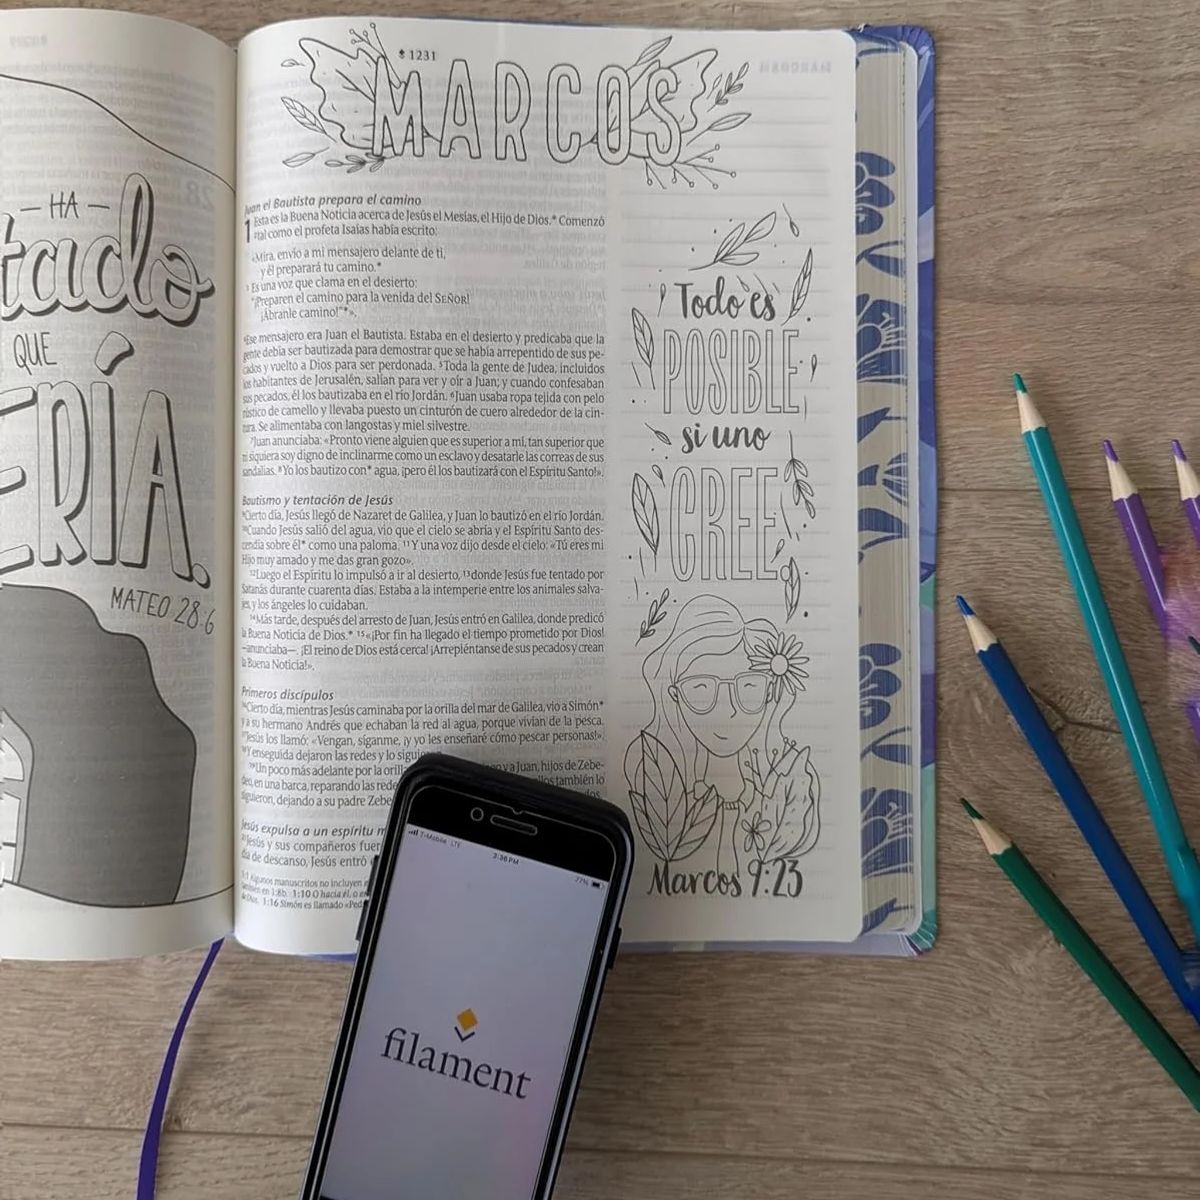 HA
tado
QUE
ERÍA.
MATEO 28:6
1231
MARCOS
Juan el Bautista prepara el camino
1 Esta es la Buena Noticia acerca de Jesús el Mesías, el Hijo de Dios.* Comenzó
2 tal como el profeta Isaías había escrito:
«Mira, envío a mi mensajero delante de ti,
y él preparará tu camino.*
3 Es una voz que clama en el desierto:
"¡Preparen el camino para la venida del SEÑOR!
¡Ábranle camino!"*».
4 Ese mensajero era Juan el Bautista. Estaba en el desierto y predicaba que la
gente debía ser bautizada para demostrar que se había arrepentido de sus pe-
cados y vuelto a Dios para ser perdonada. 5 Toda la gente de Judea, incluidos
los habitantes de Jerusalén, salían para ver y oír a Juan; y cuando confesaban
sus pecados, él los bautizaba en el río Jordán. 6 Juan usaba ropa tejida con pelo
rústico de camello y llevaba puesto un cinturón de cuero alrededor de la cin-
tura. Se alimentaba con langostas y miel silvestre.
7 Juan anunciaba: «Pronto viene alguien que es superior a mí, tan superior que
ni siquiera soy digno de inclinarme como un esclavo y desatarle las correas de sus
sandalias. 8 Yo los bautizo con* agua, ¡pero él los bautizará con el Espíritu Santo!».
Bautismo y tentación de Jesús
9 Cierto día, Jesús llegó de Nazaret de Galilea, y Juan lo bautizó en el río Jordán.
10 Cuando Jesús salió del agua, vio que el cielo se abría y el Espíritu Santo des-
cendía sobre él* como una paloma. 11 Y una voz dijo desde el cielo: «Tú eres mi
Hijo muy amado y me das gran gozo».
12 Luego el Espíritu lo impulsó a ir al desierto, 13 donde Jesús fue tentado por
Satanás durante cuarenta días. Estaba a la intemperie entre los animales salva-
jes, y los ángeles lo cuidaban.
14 Más tarde, después del arresto de Juan, Jesús entró en Galilea, donde predicó
la Buena Noticia de Dios.* 15 «¡Por fin ha llegado el tiempo prometido por Dios!
—anunciaba—. ¡El reino de Dios está cerca! ¡Arrepiéntanse de sus pecados y crean
la Buena Noticia!».
Primeros discípulos
16 Cierto día, mientras Jesús caminaba por la orilla del mar de Galilea, vio a Simón*
y a su hermano Andrés que echaban la red al agua, porque vivían de la pesca.
17 Jesús los llamó: «Vengan, síganme, ¡y yo les enseñaré cómo pescar personas!».
18 Y enseguida dejaron las redes y lo
19 Un poco más adelante por la y a Juan, hijos de Zebe-
deo, en una barca, reparando las también lo
siguieron, dejando a su padre
Jesús expulsa a un espíritu
21 Jesús y sus compañeros
día de descanso, Jesús entró
1:1 Algunos manuscritos no incluyen
también en 1:8b. 1:10 O hacia él, o
1:16 Simón es llamado
Todo es
POSIBLE
si uno
CREE.
Marcos 9:23
T-Mobile LTE
2:36 PM
77%
filament